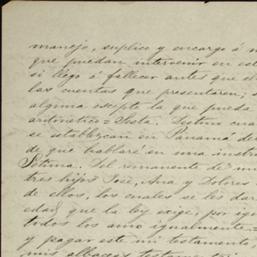 manejo, suplico y encargo á m
que puedan intervenir en est
si llegó á fallecer antes que el
las cuentas que presentaren; s
alguna escepto la que pueda
aritmético = Sesta. Lectura cua
se establezcan en Panamá de
de que hablaré en una instru
Setima. Del remanente de m
tres hijos José, Ana y Dolores
de ellos, los cuales se les dar
edad que la ley exige, por igu
todos los amo igualmente =
y pagar este mi testamento
mis albaceas testamentari